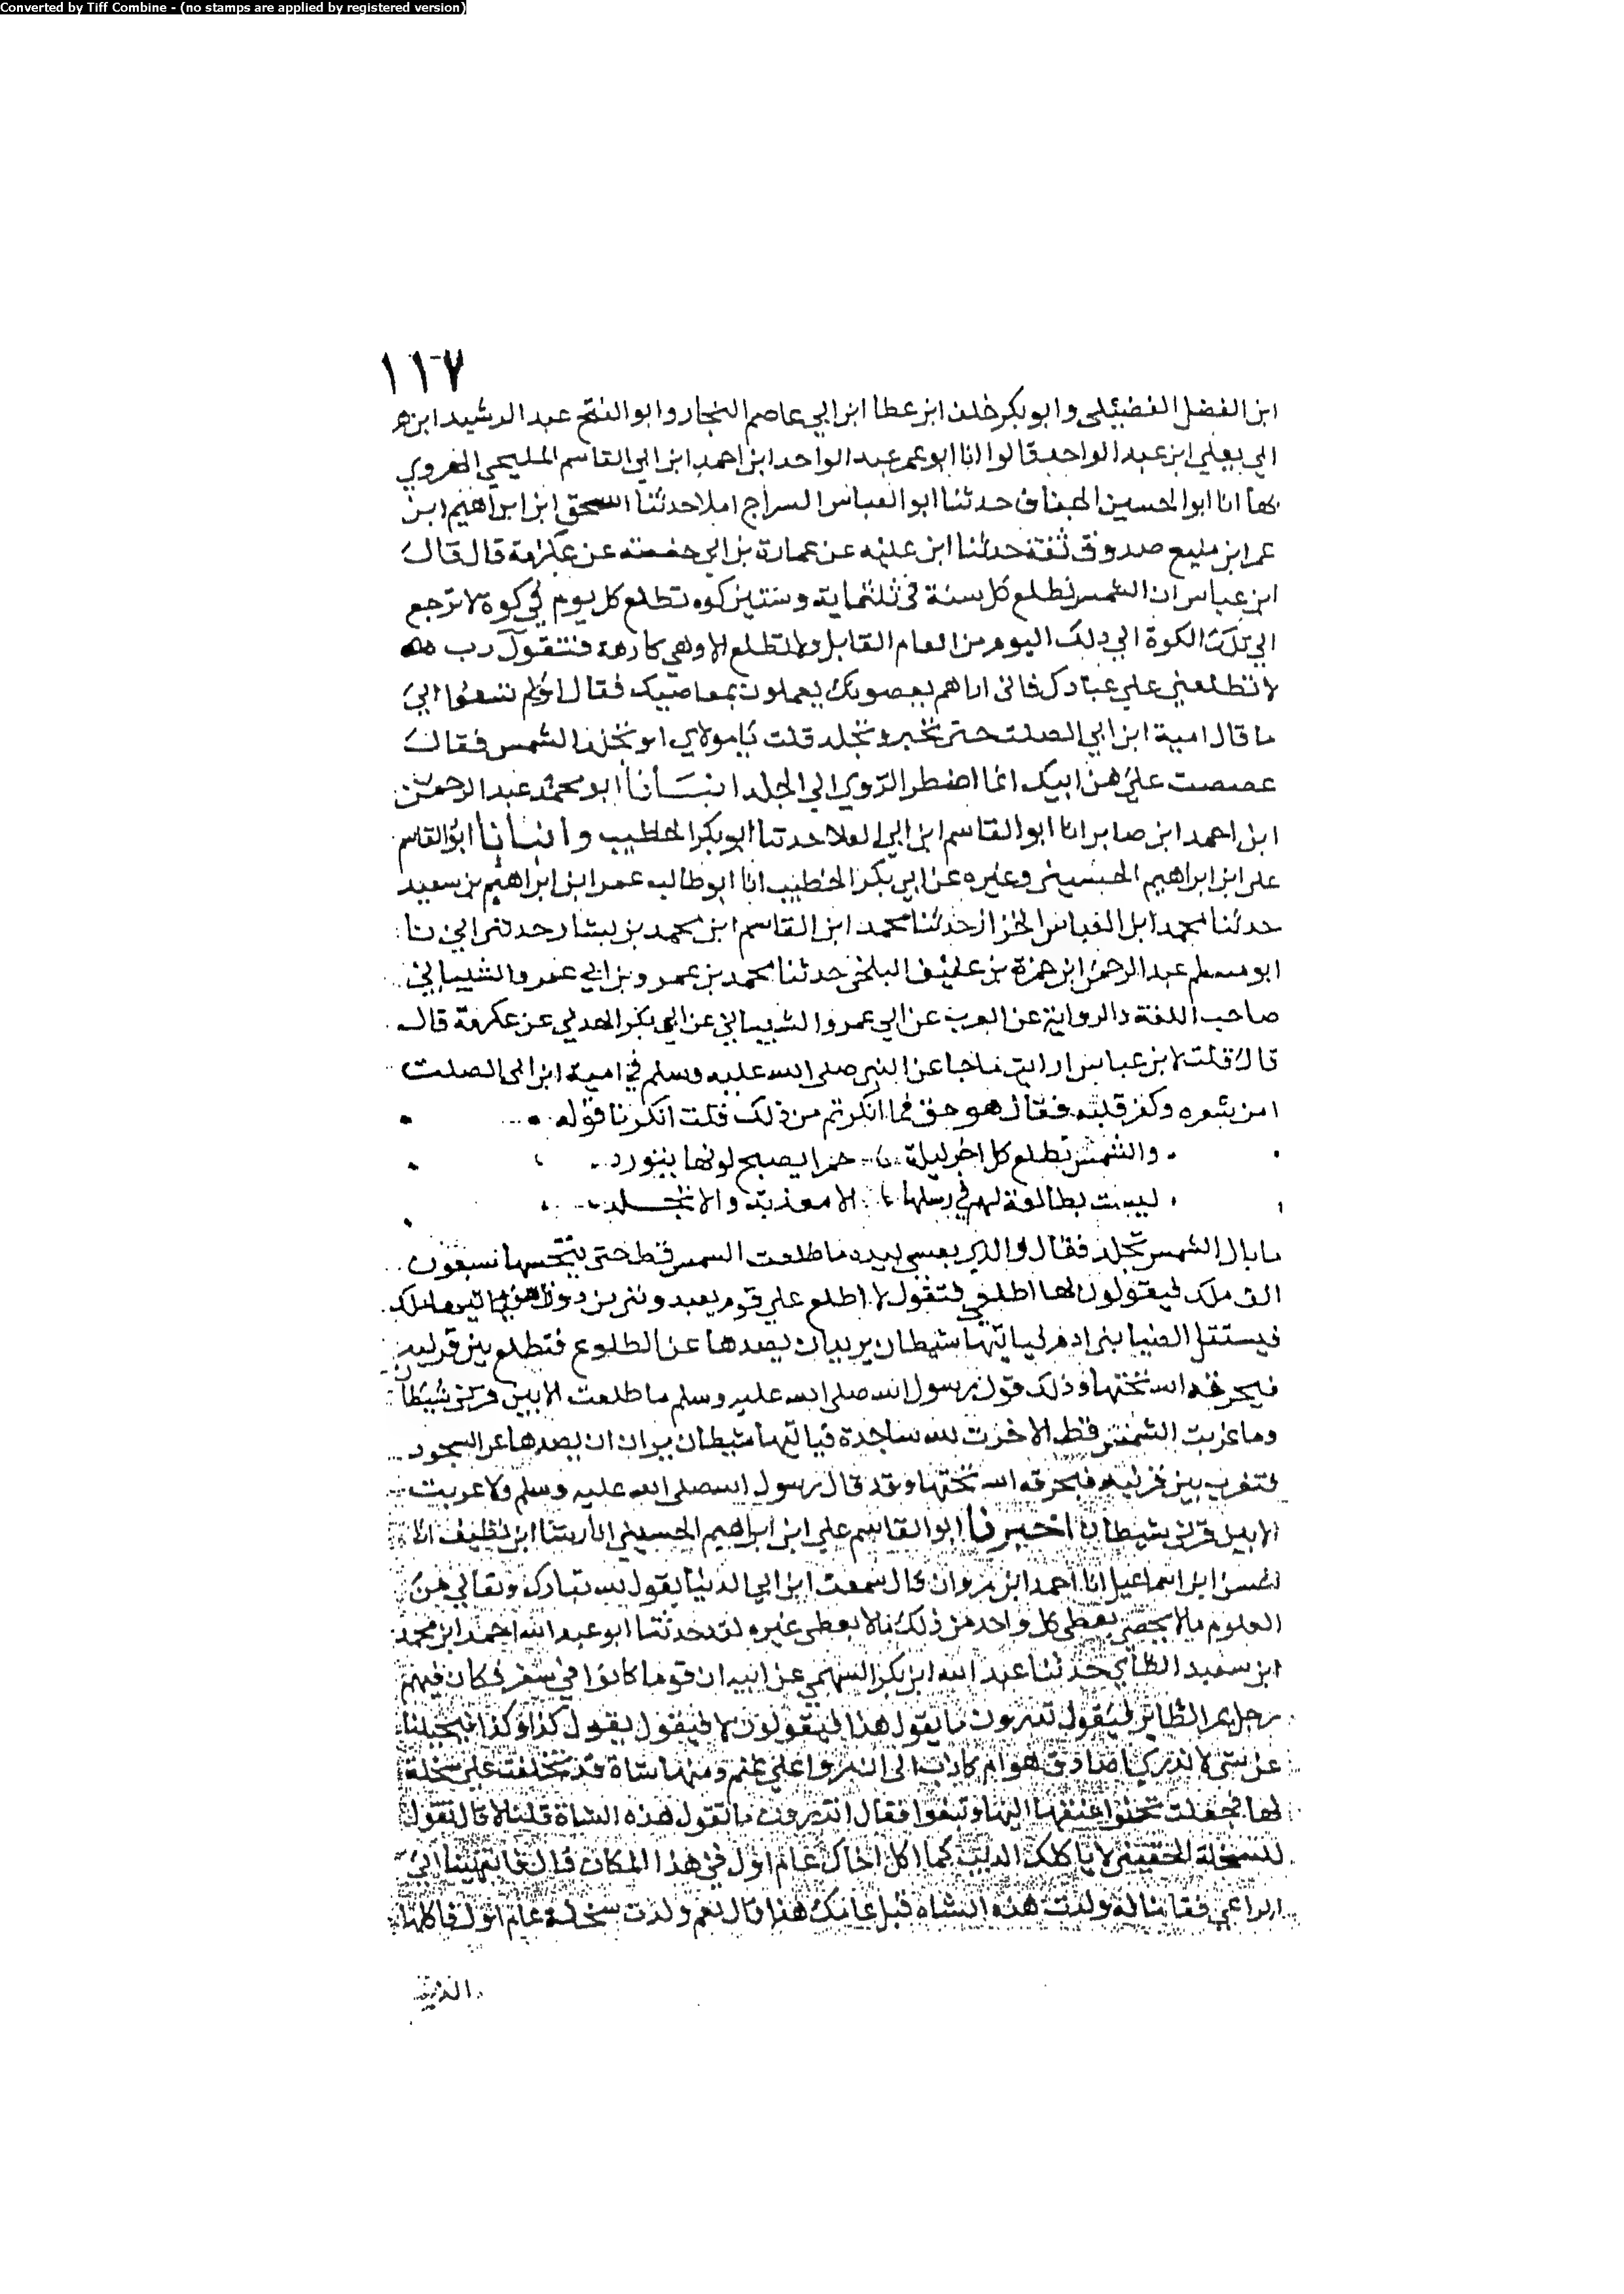 Converted by Tiff Combine - (no stamps are applied by registered version)
١١٧
ابن الفضل الفضيلى وابو بكر خلف ابن عطا ابن ابي عاصم النجار وابو الفتح عبد الرشيد ابن
ابي يعلي ابن عبد الواحد قالوا انا ابو عمر عبد الواحد ابن احمد ابن ابي القاسم المليحي الهروي
بها انا ابو الحسين الخفاف حدثنا ابو العباس السراج املا حدثنا اسحق ابن ابراهيم ابن
عمر ابن منيع صدوق ثقة حدثنا ابن عليه عن عمارة بن ابي حفصه عن عكرمة قال قال
ابن عباس ان الشمس تطلع كل سنة في ثلثماية وستين كوه تطلع كل يوم في كوة لا ترجع
الي تلك الكوة الي ذلك اليوم من العام القابل ولا تطلع الا وهي كارهة فتقول رب
لا تطلعني علي عبادك فاني اراهم يعصونك يعملون بمعاصيك فقال اولم تسمعوا الي
ما قال امية ابن ابي الصلت حتى تجر وتجلد قلت يا مولاي او تجلد الشمس فقال
عضضت علي هن ابيك انما اضطر الروي الي الجلد انبأنا ابو محمد عبد الرحمن
ابن احمد ابن صابر انا ابو القاسم ابن ابي العلا حدثنا ابو بكر الخطيب وانبانا ابو القاسم
علي ابن ابراهيم الحسيني وغيره عن ابي بكر الخطيب انا ابو طالب عمر ابن ابراهيم بن سعيد
حدثنا محمد ابن العباس الخزاز حدثنا محمد ابن القاسم ابن محمد بن بشار حدثني ابي نا
ابو مسلم عبد الرحمن ابن حمزة بن عفيف البلخي حدثنا محمد بن عمرو بن ابي عمرو الشيباني
صاحب اللغة والرواية عن العرب عن ابي عمرو الشيباني عن ابي بكر الهدلي عن عكرمة قال
قال قلت لابن عباس ارايت ما جا عن النبي صلى الله عليه وسلم في امية ابن ابي الصلت
امن شعره وكفر قلبه فقال هو حق فما انكرتم من ذلك قلت انكرنا قوله
والشمس تطلع كل اخر ليلة حمرا يصبح لونها يتورد
ليست بطالعة لهم في رسلها الا معذبة والا تجلد
ما بال الشمس تجلد فقال والذي نفسي بيده ما طلعت الشمس قط حتى ينخسها سبعون
الف ملك فيقولون لها اطلعي فتقول لا اطلع علي قوم يعبدونني من دون الله فياتيها ملك
فيستقل لضيا بني ادم فياتيها شيطان يريد ان يصدها عن الطلوع فتطلع بين قرنيه
فيحرقه الله تحتها وذلك قول رسول الله صلى الله عليه وسلم ما طلعت الا بين قرني شيطان
وما غربت الشمس قط الا خرت لله ساجدة فياتيها شيطان يريد ان يصدها عن السجود
فتغرب بين قرنيه فيحرقه الله تحتها وقد قال رسول الله صلى الله عليه وسلم ولا غربت
الا بين قرني شيطان اخبرنا ابو القاسم علي ابن ابراهيم الحسيني انا رشا ابن نظيف انا
الحسن ابن اسماعيل انا احمد ابن مروان قال سمعت ابن ابي الدنيا يقول لله تبارك وتعالي من
العلوم ما لا يحصى يعطي كل واحد من ذلك ما لا يعطي غيره لقد حدثنا ابو عبد الله احمد ابن محمد
ابن سعيد الطاي حدثنا عبد الله ابن بكر السهمي عن ابيه ان قوما كانوا في سفر فكان فيهم
رجل يمر الطاير فيقول تدرون ما يقول هذا فيقولون لا فيقول يقول كذا وكذا فيحيلنا
على شي لا ندري اصادق هو ام كاذب الى ان مروا علي غنم ومنها شاة قد تخلفت علي سخلة
لها فجعلت تحنوا عنقها اليها وتثغوا فقال اتدرون ما تقول هذه الشاة قلنا لا قال تقول
للسخلة الحقيني لا ياكلك الديب كما اكل اخاك عام اول في هذا المكان قال فانتهينا الي
الراعي فقلنا له ولدت هذه الشاه قبل عامك هذا قال نعم ولدت سخلة عام اول فاكلها
الذيب